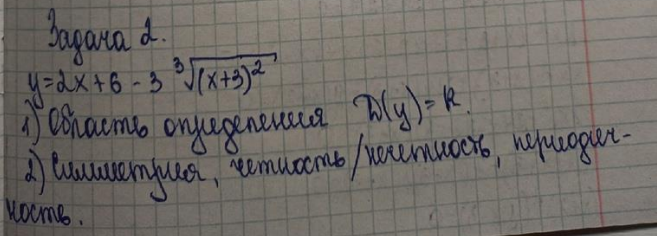 Задача 2.
y=2x+6-3∛(x+3)²
1) Область определения D(y)=R.
2) Симметрия, четность/нечетность, периодич-
ность.